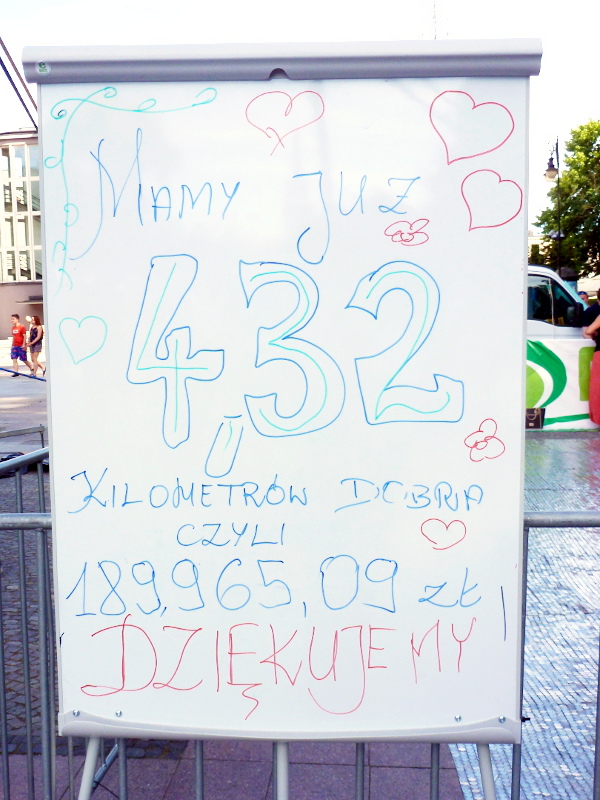 MAMY JUŻ
4,32
KILOMETRÓW DOBRA
CZYLI
189,965,09 zł
DZIĘKUJEMY